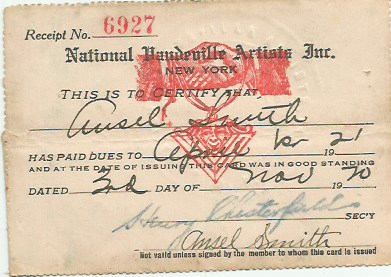 Receipt No. 6927
National Vaudeville Artists Inc.
NEW YORK
THIS IS TO CERTIFY THAT,
Ansel Smith
HAS PAID DUES TO April 1st 1921
AND AT THE DATE OF ISSUING THIS CARD WAS IN GOOD STANDING
DATED 3rd DAY OF Nov 1920
Henry Chesterfield SEC'Y
Ansel Smith
Not valid unless signed by the member to whom this card is issued